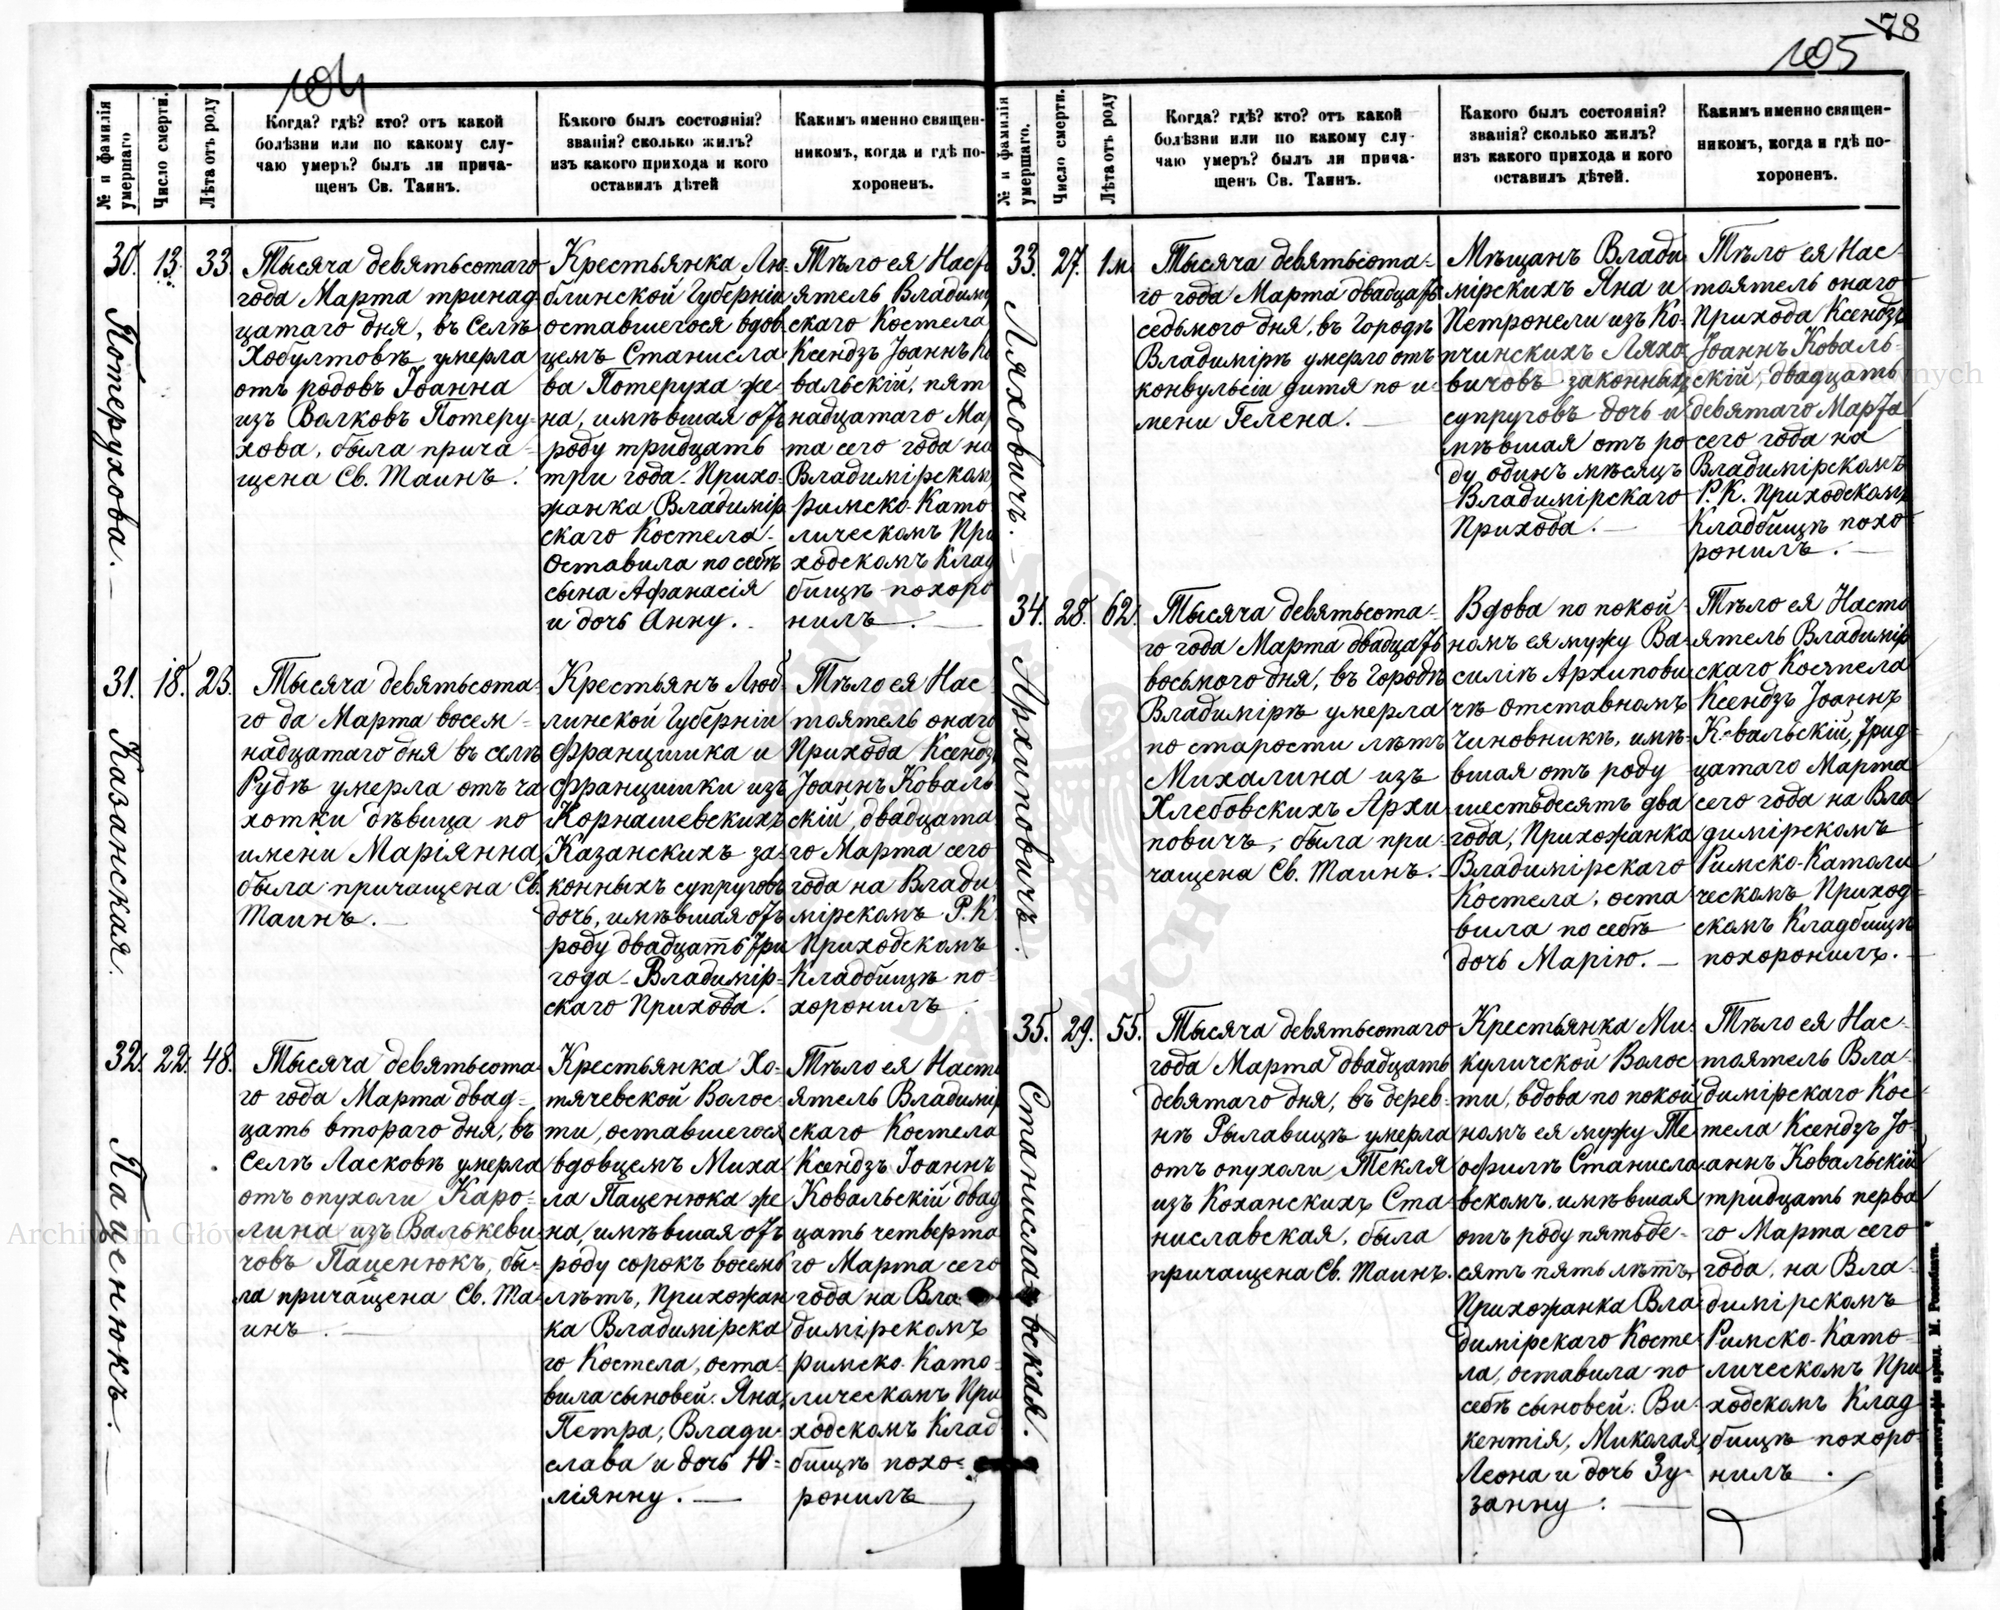 104
№ и фамилія умершаго.
Число смерти.
Лѣта отъ роду
Когда? гдѣ? кто? отъ какой
болѣзни или по какому слу-
чаю умеръ? былъ ли прича-
щенъ Св. Таинъ.
Какого былъ состоянія?
званія? сколько жилъ?
изъ какого прихода и кого
оставилъ дѣтей
Какимъ именно священ-
никомъ, когда и гдѣ по-
хороненъ.
30.
Потерухова.
13.
33.
Тысяча девятьсотаго
года Марта тринад
цатаго дня, въ Селѣ
Хобултовѣ умерла
отъ родовъ Іоанна
изъ Волковъ Потеру-
хова, была прича-
щена Св. Таинъ.
Крестьянка Лю-
блинской Губерніи
оставшегося вдов
цемъ Станисла
ва Потеруха же-
на, имѣвшая отъ
роду тридцать
три года. Прихо-
жанка Владимір
скаго Костела.
Оставила по себѣ
сына Афанасія
и дочь Анну.
Тѣло ея Насто
ятель Владимір
скаго Костела
Ксендзъ Іоаннъ Ко
вальскій, пят
надцатаго Мар
та сего года на
Владимірском
Римско-Като
лическомъ При
ходскомъ Клад
бищѣ похоро
нилъ.
31.
Казанская.
18.
23.
Тысяча девятьсота-
го да Марта восем-
надцатаго дня въ селѣ
Рудѣ умерла отъ ча
хотки дѣвица по
имени Маріянна,
была причащена Св.
Таинъ.
Крестьянъ Люб-
линской Губерніи
Францишка и
Францишки изъ
Корнашевскихъ
Казанскихъ за-
конныхъ супруговъ
дочь, имѣвшая отъ
роду двадцать три
года - Владимір-
скаго Прихода.
Тѣло ея Нас-
тоятель онаго
Прихода Ксендзъ
Іоаннъ Коваль-
скій, двадцата
го Марта сего
года на Влади-
мірскомъ Р. К.
Приходскомъ
Кладбищѣ по-
хоронилъ.
32.
Паценюкъ.
22.
48.
Тысяча девятьсота
го года Марта двад-
цать втораго дня, въ
Селѣ Ласковѣ умерла
отъ опухоли Каро-
лина изъ Валькеви-
човъ Паценюкъ, бы-
ла причащена Св. Та-
инъ.
Крестьянка Хо-
тячевской Волос-
ти, оставшегося
вдовцемъ Миха
ла Паценюка же
на, имѣвшая отъ
роду сорокъ восемь
лѣтъ, Прихожан
ка Владимірска
го Костела, оста-
вила сыновей: Яна,
Петра, Влади-
слава и дочь Ю-
ліянну.
Тѣло ея Насто
ятель Владимір
скаго Костела
Ксендзъ Іоаннъ
Ковальскій двад
цать четверта
го Марта сего
года на Вла
димірскомъ
римско-Като-
лическомъ При
ходскомъ Клад
бищѣ похо-
ронилъ
78
105
№ и фамилія умершаго.
Число смерти.
Лѣта отъ роду
Когда? гдѣ? кто? отъ какой
болѣзни или по какому слу-
чаю умеръ? былъ ли прича-
щенъ Св. Таинъ.
Какого былъ состоянія?
званія? сколько жилъ?
изъ какого прихода и кого
оставилъ дѣтей.
Какимъ именно священ-
никомъ, когда и гдѣ по-
хороненъ.
33.
Ляховичъ.
27.
1м.
Тысяча девятьсота-
го года Марта двадцать
седьмого дня, въ Городѣ
Владимірѣ умерло отъ
конвульсіи дитя по и-
мени Гелена.
Мѣщанъ Влади
мірскихъ Яна и
Петронели изъ Ко-
пчинскихъ Ляхо
вичовъ законныхъ
супруговъ дочь и
мѣвшая отъ ро
ду одинъ мѣсяцъ
Владимірскаго
Прихода.
Тѣло ея Нас-
тоятель онаго
Прихода Ксендзъ
Іоаннъ Коваль-
скій, двадцать
девятаго Марта
сего года на
Владимірскомъ
Р. К. Приходскомъ
Кладбищѣ похо-
ронилъ.
34.
Архиповичъ.
28.
62.
Тысяча девятьсота-
го года Марта двадцать
восьмого дня, въ Городѣ
Владимірѣ умерла
по старости лѣтъ
Михалина изъ
Хлебовскихъ Архи
повичъ, была при-
чащена Св. Таинъ.
Вдова по покой-
номъ ея мужу Ва-
силіѣ Архипови
чѣ отставномъ
чиновникѣ, имѣ-
вшая отъ роду
шестьдесятъ два
года, Прихожанка
Владимірскаго
Костела, оста
вила по себѣ
дочь Марію.
Тѣло ея Насто
ятель Владимір
скаго Костела
Ксендзъ Іоаннъ
Ковальскій, трид-
цатаго Марта
сего года на Вла
димірскомъ
Римско-Католи
ческомъ Приход-
скомъ Кладбищѣ
похоронилъ.
35.
Станиславская.
29.
55.
Тысяча девятьсотаго
года Марта двадцать
девятаго дня, въ дерев-
нѣ Рылавицѣ умерла
отъ опухоли Текля
изъ Коханскихъ Ста-
ниславская, была
причащена Св. Таинъ.
Крестьянка Ми-
куличской Волос
ти, вдова по покой
номъ ея мужу Те
офилѣ Станисла
вскомъ, имѣвшая
отъ роду пятьде-
сятъ пять лѣтъ,
Прихожанка Вла-
димірскаго Косте
ла, оставила по
себѣ сыновей: Ви-
кентія, Миколая
Леона и дочь Зу-
занну.
Тѣло ея Нас-
тоятель Вла-
димірскаго Кос-
тела Ксендзъ Іо-
аннъ Ковальскій
тридцать перва
го Марта сего
года, на Вла-
димірскомъ
Римско-Като-
лическомъ При
ходскомъ Клад-
бищѣ похоро-
нилъ.